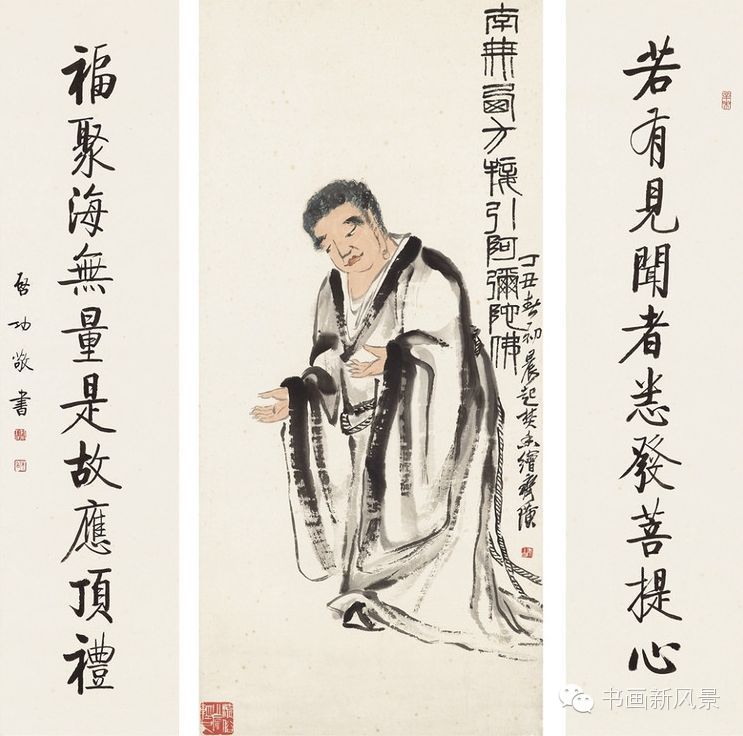 若有見聞者悉發菩提心
南無西方接引阿彌陀佛
丁丑春初晨起焚香繪齊璜
福聚海無量是故應頂禮
啓功敬書
书画新风景